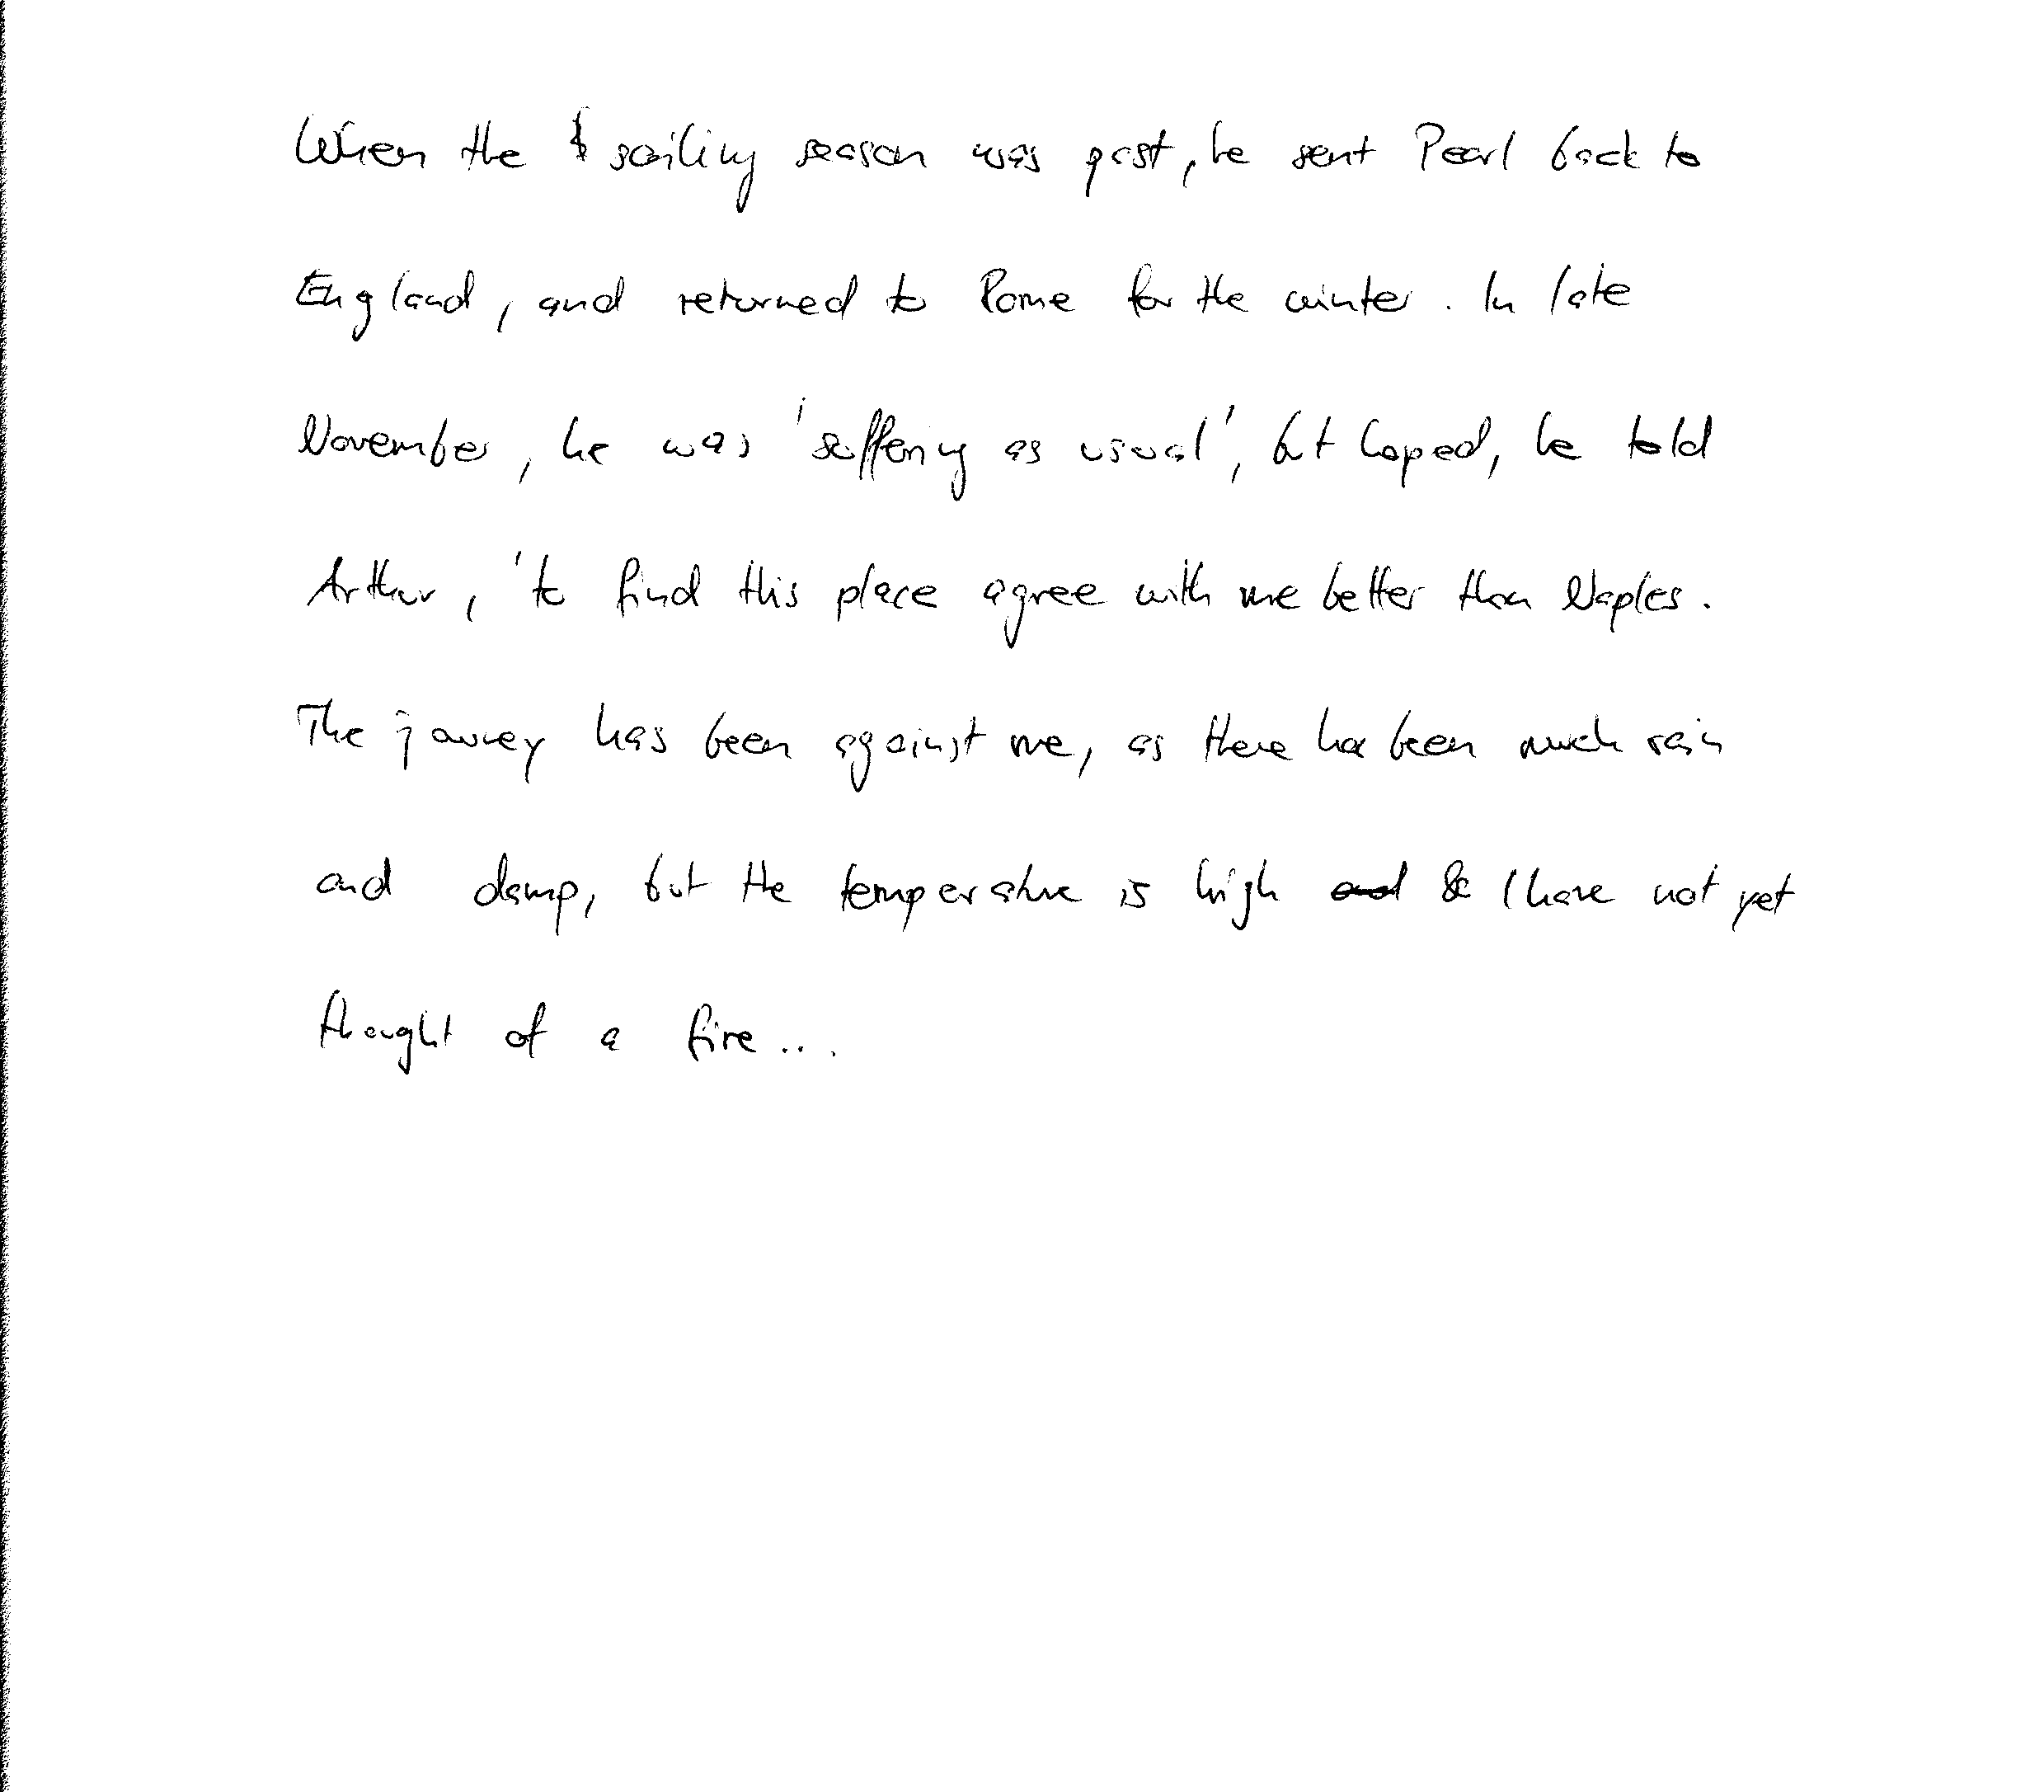 When the sailing season was past, he sent Pearl back to
England, and returned to Rome for the winter. In late
November, he was 'suffering as usual', but hoped, he told
Arthur, 'to find this place agree with me better than Naples.
The journey has been against me, as there has been much rain
and damp, but the temperature is high & I have not yet
thought of a fire...